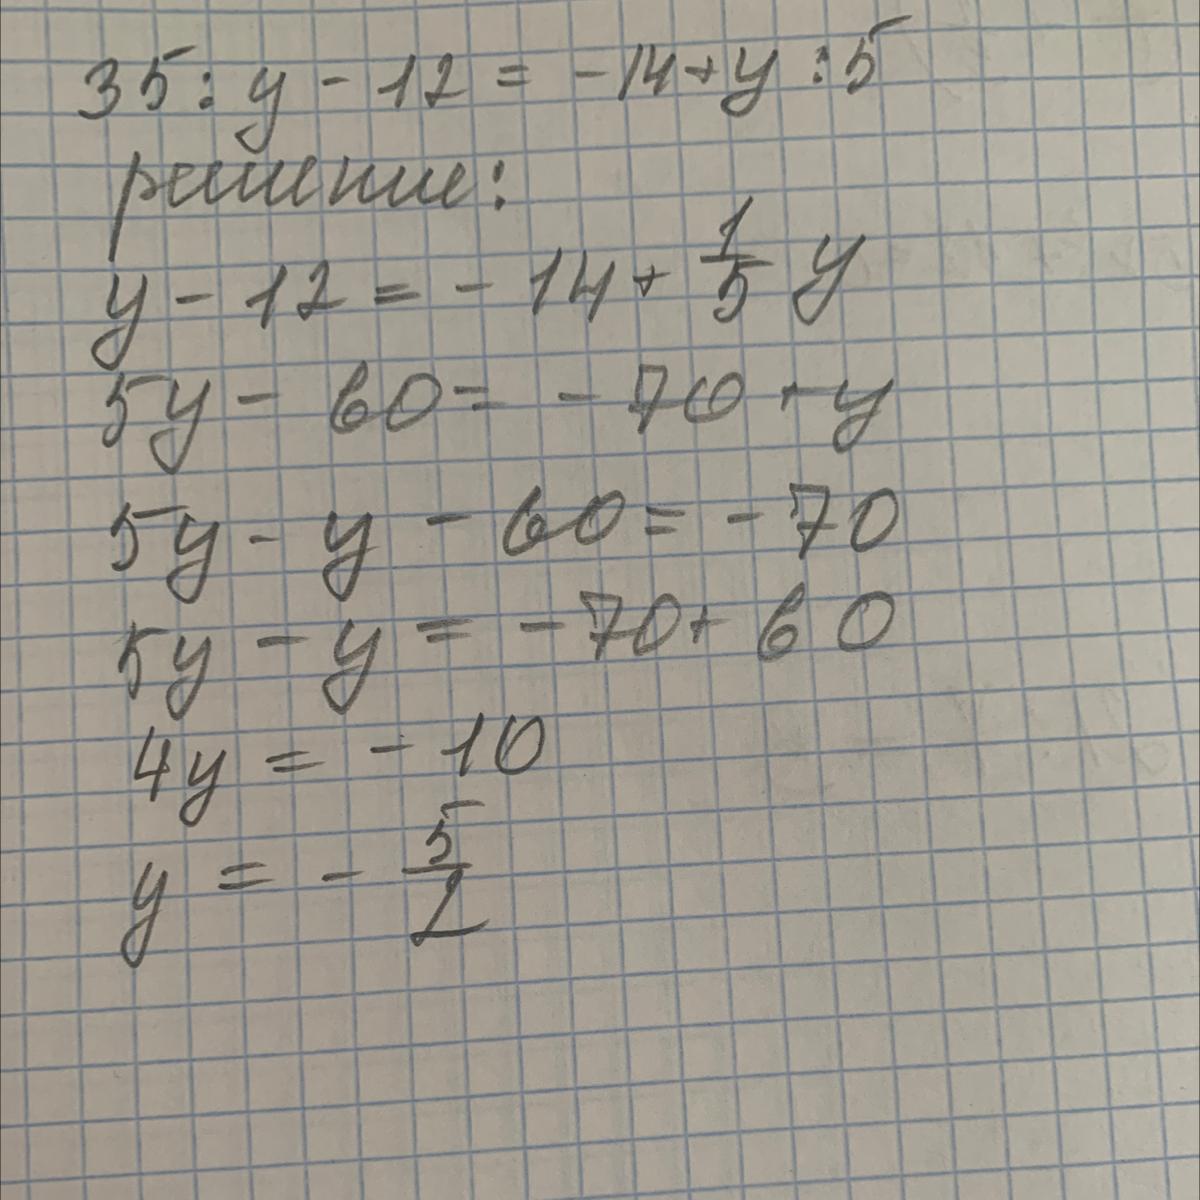 35 : y - 12 = -14 + y : 5
решение:
y - 12 = - 14 + 1/5 y
5y - 60 = - 70 + y
5y - y - 60 = - 70
5y - y = - 70 + 60
4y = - 10
y = - 5/2